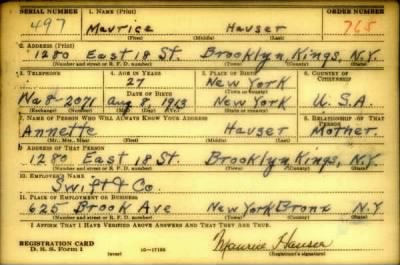 SERIAL NUMBER 1. NAME (Print) ORDER NUMBER
497 Maurice Hauser 765
(First) (Middle) (Last)
2. ADDRESS (Print)
1280 East 18 St. Brooklyn Kings, N.Y.
(Number and street or R. F. D. number) (Town) (County) (State)
3. TELEPHONE 4. AGE IN YEARS 5. PLACE OF BIRTH 6. COUNTRY OF CITIZENSHIP
27 New York
DATE OF BIRTH (Town or county)
Na8-2071 Aug 8, 1913 New York U.S.A.
(Exchange) (Number) (Mo.) (Day) (Yr.) (State or country)
7. NAME OF PERSON WHO WILL ALWAYS KNOW YOUR ADDRESS 8. RELATIONSHIP OF THAT PERSON
Annette Hauser Mother.
(Mr., Mrs., Miss) (First) (Middle) (Last)
9. ADDRESS OF THAT PERSON
1280 East 18 St. Brooklyn Kings, N.Y.
(Number and street or R. F. D. number) (Town) (County) (State)
10. EMPLOYER'S NAME
Swift & Co.
11. PLACE OF EMPLOYMENT OR BUSINESS
625 Brook Ave New York Bronx N.Y.
(Number and street or R. F. D. number) (Town) (County) (State)
I AFFIRM THAT I HAVE VERIFIED ABOVE ANSWERS AND THAT THEY ARE TRUE.
REGISTRATION CARD
D. S. S. Form 1 (over) 16—17105 Maurice Hauser
(Registrant's signature)